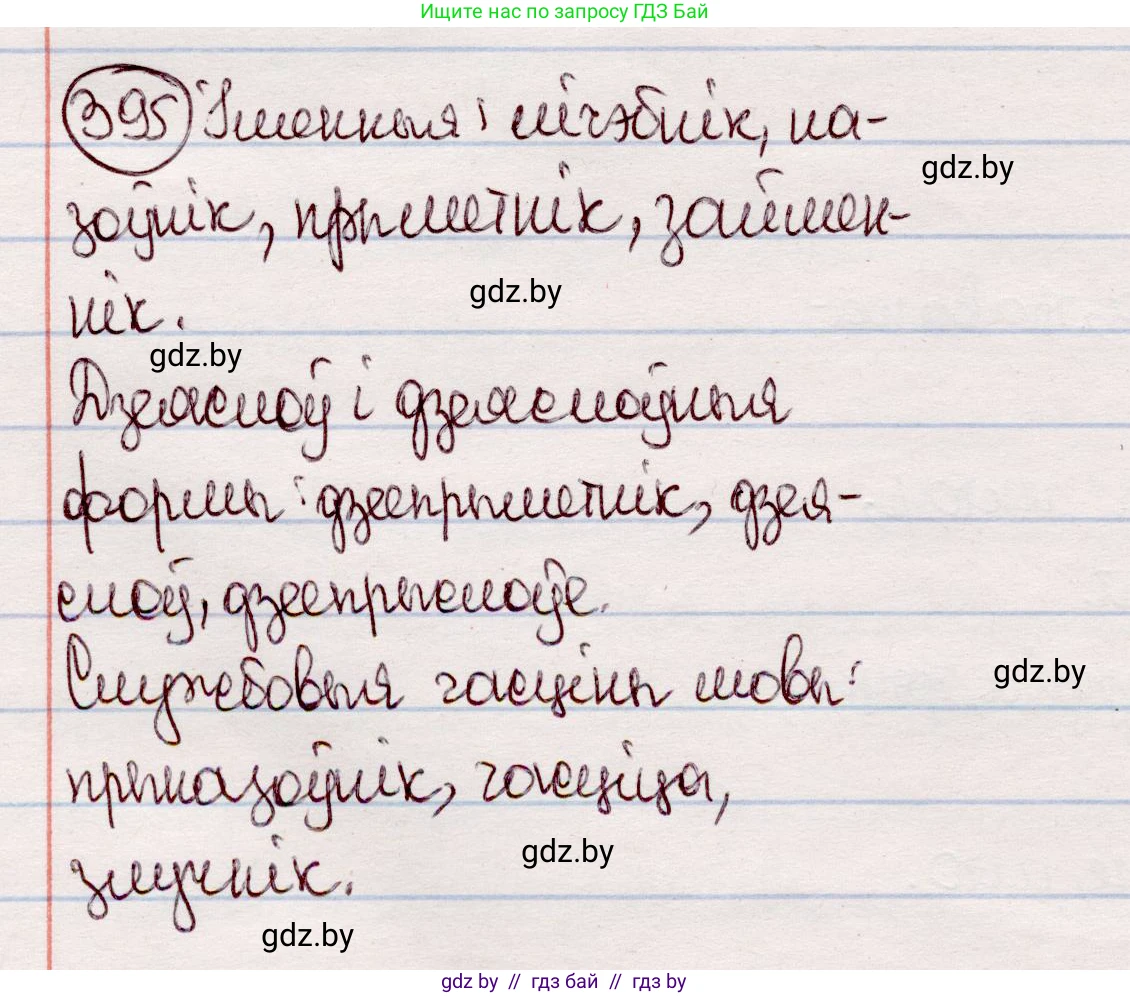 Ищите нас по запросу ГДЗ Бай
395 Іменныя: лічэбнік, на-
gdz.by
зоўнік, прыметнік, займен-
нік.
gdz.by
gdz.by
Дзеяслоў і дзеяслоўныя
формы: дзеепрыметнік, дзея-
слоў, дзеепрыслоўе.
Службовыя часціны мовы:
gdz.by
прыназоўнік, часціца,
злучнік.
gdz.by
gdz.by
gdz by // гдз бай // гдз by